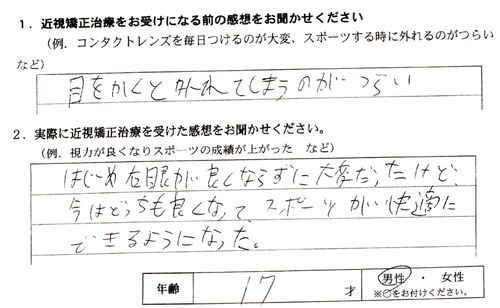 1．近視矯正治療をお受けになる前の感想をお聞かせください
（例．コンタクトレンズを毎日つけるのが大変、スポーツする時に外れるのがつらい
など）
目をかくと外れてしまうのがつらい
2．実際に近視矯正治療を受けた感想をお聞かせください。
（例．視力が良くなりスポーツの成績が上がった　など）
はじめ右眼が良くならずに大変だったけど、
今はどっちも良くなって、スポーツが快適に
できるようになった。
年齢　17　才　男性・女性
※○をお付けください。